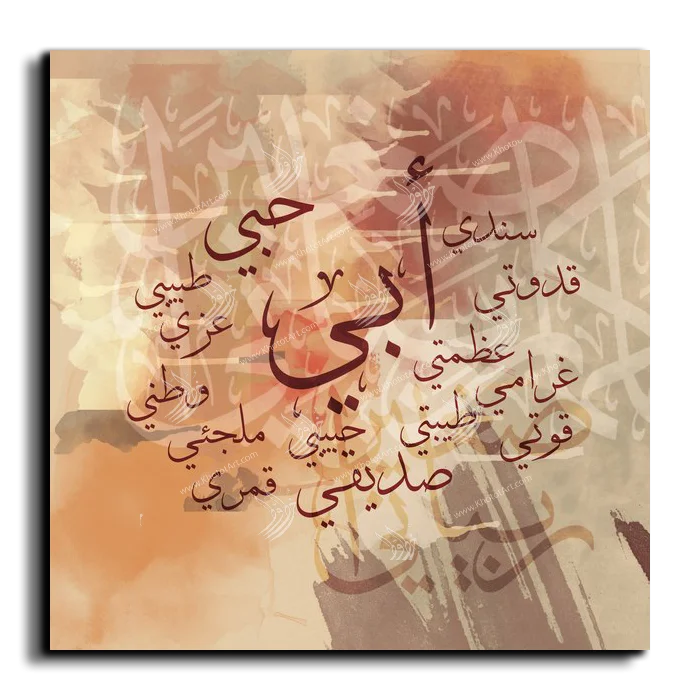 أبي
حبي
سندي
قدوتي
طبيبي
عزي
عظمتي
غرامي
وطني
ملجئي
حبيبي
طيبتي
قوتي
قمري
صديقي
www.KhototArt.com